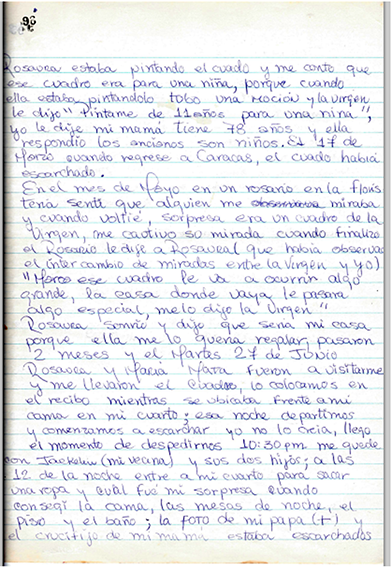 96
Rosaura estaba pintando el cuado y me conto que
ese cuadro era para una niña, porque cuando
ella estaba pintandolo tubo una moción y la virgen
le dijo "Pintame de 11 años para una nina",
yo le dije mi mamá tiene 78 años y ella
respondio los ancianos son niños. El 17 de
Marzo cuando regrese a Caracas, el cuado habia
escarchado.
En el mes de Mayo en un rosario en la floris
teria senti que alguien me miraba
y cuando voltie, sorpresa era un cuadro de la
Virgen, me cautivo su mirada cuando finalizo
el Rosario le dije a Rosaura( que habia observado
el intercambio de miradas entre la Virgen y yo)
" ese cuadro le va a ocurrir algo
grande, la casa donde vaya le pasara
algo especial, melo dijo la Virgen"
Rosaura sonrio y dijo que seria mi casa
porque ella me lo queria regalar, pasaron
2 meses y el Martes 27 de Junio
Rosaura y Maria Mata fueron a visitarme
y me llevaron el cuadro, lo colocamos en
el recibo mientras se ubicaba frente a mi
cama en mi cuarto; esa noche departimos
y comenzamos a escarchar yo no lo creia, llego
el momento de despedirnos 10:30 pm me quede
con (mi vecina) y sus dos hijos; a las
12 de la noche entre a mi cuarto para sacar
una ropa y cuál fué mi sorpresa cuando
consegi la cama, las mesas de noche, el
piso y el baño; la foto de mi papa (+) y
el crucifijo de mi mamá estaba escarchados